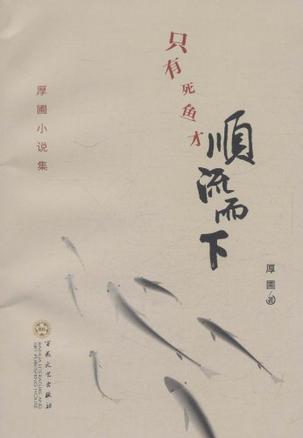 只有死鱼才
顺流而下
厚圃小说集
厚圃 著
百花文艺出版社
BAIHUA LITERATURE AND
ART PUBLISHING HOUSE